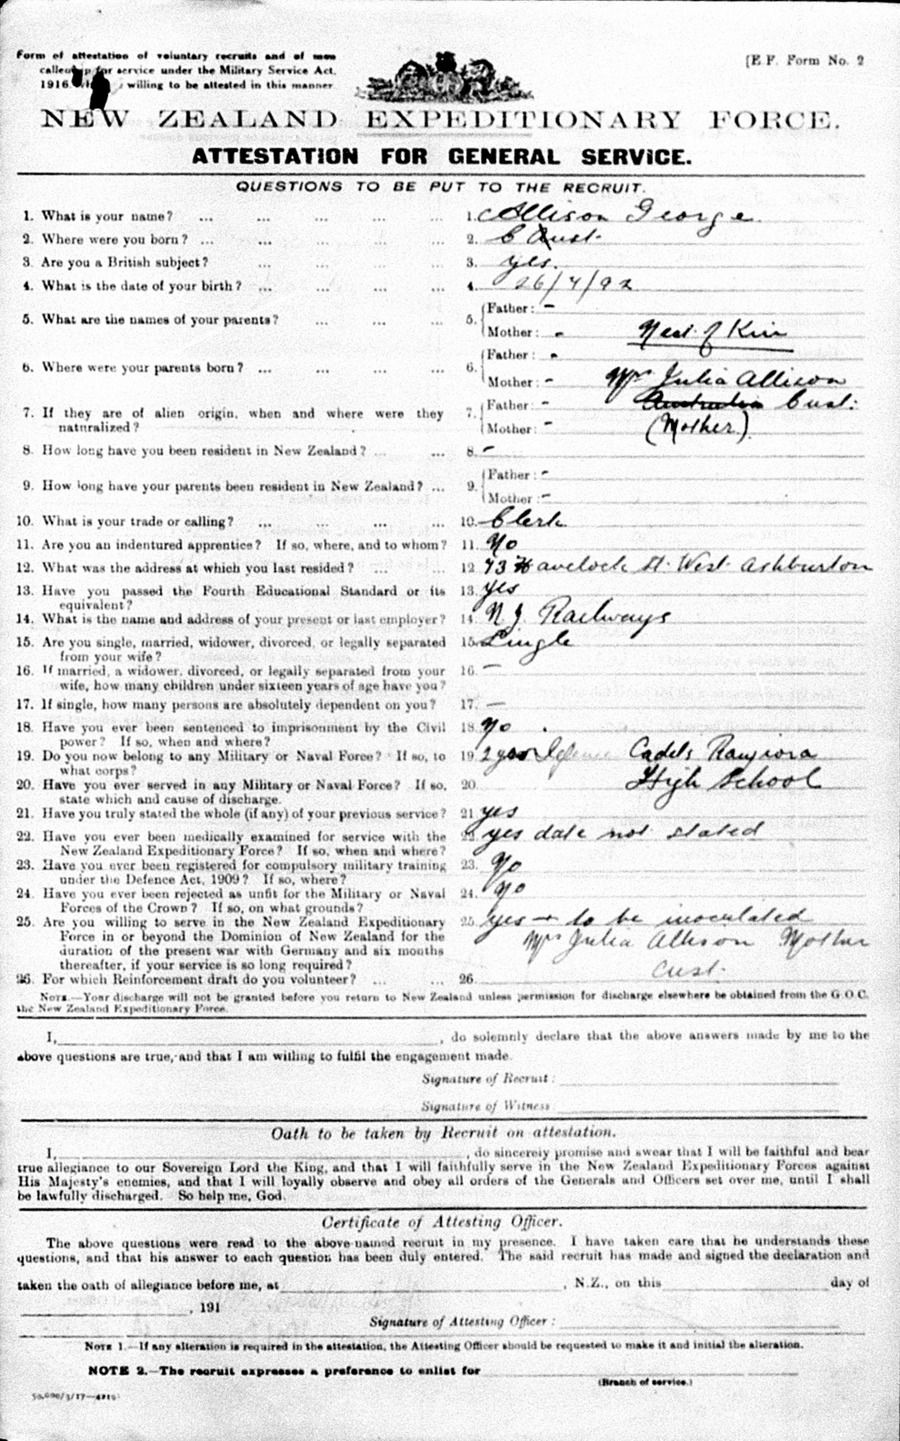 Form of attestation of voluntary recruits and of men
called up for service under the Military Service Act,
1916, willing to be attested in this manner.
[E.F. Form No. 2
NEW ZEALAND EXPEDITIONARY FORCE.
ATTESTATION FOR GENERAL SERVICE.
QUESTIONS TO BE PUT TO THE RECRUIT.
1. What is your name? ... ... ... ... ... 1. Allison George
2. Where were you born? ... ... ... ... ... 2. Cust.
3. Are you a British subject? ... ... ... ... 3. yes.
4. What is the date of your birth? ... ... ... ... 4. 26/7/92
5. What are the names of your parents? ... ... ... 5. Father: -
Mother: - Next of Kin
6. Where were your parents born? ... ... ... ... 6. Father: -
Mother: - Mrs Julia Allison
7. If they are of alien origin, when and where were they naturalized? 7. Father: - Australia Cust.
Mother: - (Mother)
8. How long have you been resident in New Zealand? ... ... 8. -
9. How long have your parents been resident in New Zealand? ... 9. Father: -
Mother: -
10. What is your trade or calling? ... ... ... ... 10. Clerk
11. Are you an indentured apprentice? If so, where, and to whom? 11. No
12. What was the address at which you last resided? ... ... 12. 73 Havelock St. West Ashburton
13. Have you passed the Fourth Educational Standard or its equivalent? 13. yes
14. What is the name and address of your present or last employer? 14. N.Z. Railways
15. Are you single, married, widower, divorced, or legally separated from your wife? 15. Single
16. If married, a widower, divorced, or legally separated from your wife, how many children under sixteen years of age have you? 16. -
17. If single, how many persons are absolutely dependent on you? 17. -
18. Have you ever been sentenced to imprisonment by the Civil power? If so, when and where? 18. No
19. Do you now belong to any Military or Naval Force? If so, to what corps? 19. 2 years Defence Cadets Rangiora
20. Have you ever served in any Military or Naval Force? If so, state which and cause of discharge. 20. High School
21. Have you truly stated the whole (if any) of your previous service? 21. yes
22. Have you ever been medically examined for service with the New Zealand Expeditionary Force? If so, when and where? 22. yes date not stated
23. Have you ever been registered for compulsory military training under the Defence Act, 1909? If so, where? 23. No
24. Have you ever been rejected as unfit for the Military or Naval Forces of the Crown? If so, on what grounds? 24. No
25. Are you willing to serve in the New Zealand Expeditionary Force in or beyond the Dominion of New Zealand for the duration of the present war with Germany and six months thereafter, if your service is so long required? 25. yes + to be inoculated
Mrs Julia Allison Mother
Cust.
26. For which Reinforcement draft do you volunteer? ... ... 26.
NOTE.—Your discharge will not be granted before you return to New Zealand unless permission for discharge elsewhere be obtained from the G.O.C.
the New Zealand Expeditionary Force.
I, , do solemnly declare that the above answers made by me to the
above questions are true, and that I am willing to fulfil the engagement made.
Signature of Recruit:
Signature of Witness
Oath to be taken by Recruit on attestation.
I, , do sincerely promise and swear that I will be faithful and bear
true allegiance to our Sovereign Lord the King, and that I will faithfully serve in the New Zealand Expeditionary Forces against
His Majesty's enemies, and that I will loyally observe and obey all orders of the Generals and Officers set over me, until I shall
be lawfully discharged. So help me, God.
Certificate of Attesting Officer.
The above questions were read to the above-named recruit in my presence. I have taken care that he understands these
questions, and that his answer to each question has been duly entered. The said recruit has made and signed the declaration and
taken the oath of allegiance before me, at , N.Z., on this day of
, 191
Signature of Attesting Officer:
NOTE 1.—If any alteration is required in the attestation, the Attesting Officer should be requested to make it and initial the alteration.
NOTE 2.—The recruit expresses a preference to enlist for
(Branch of service.)